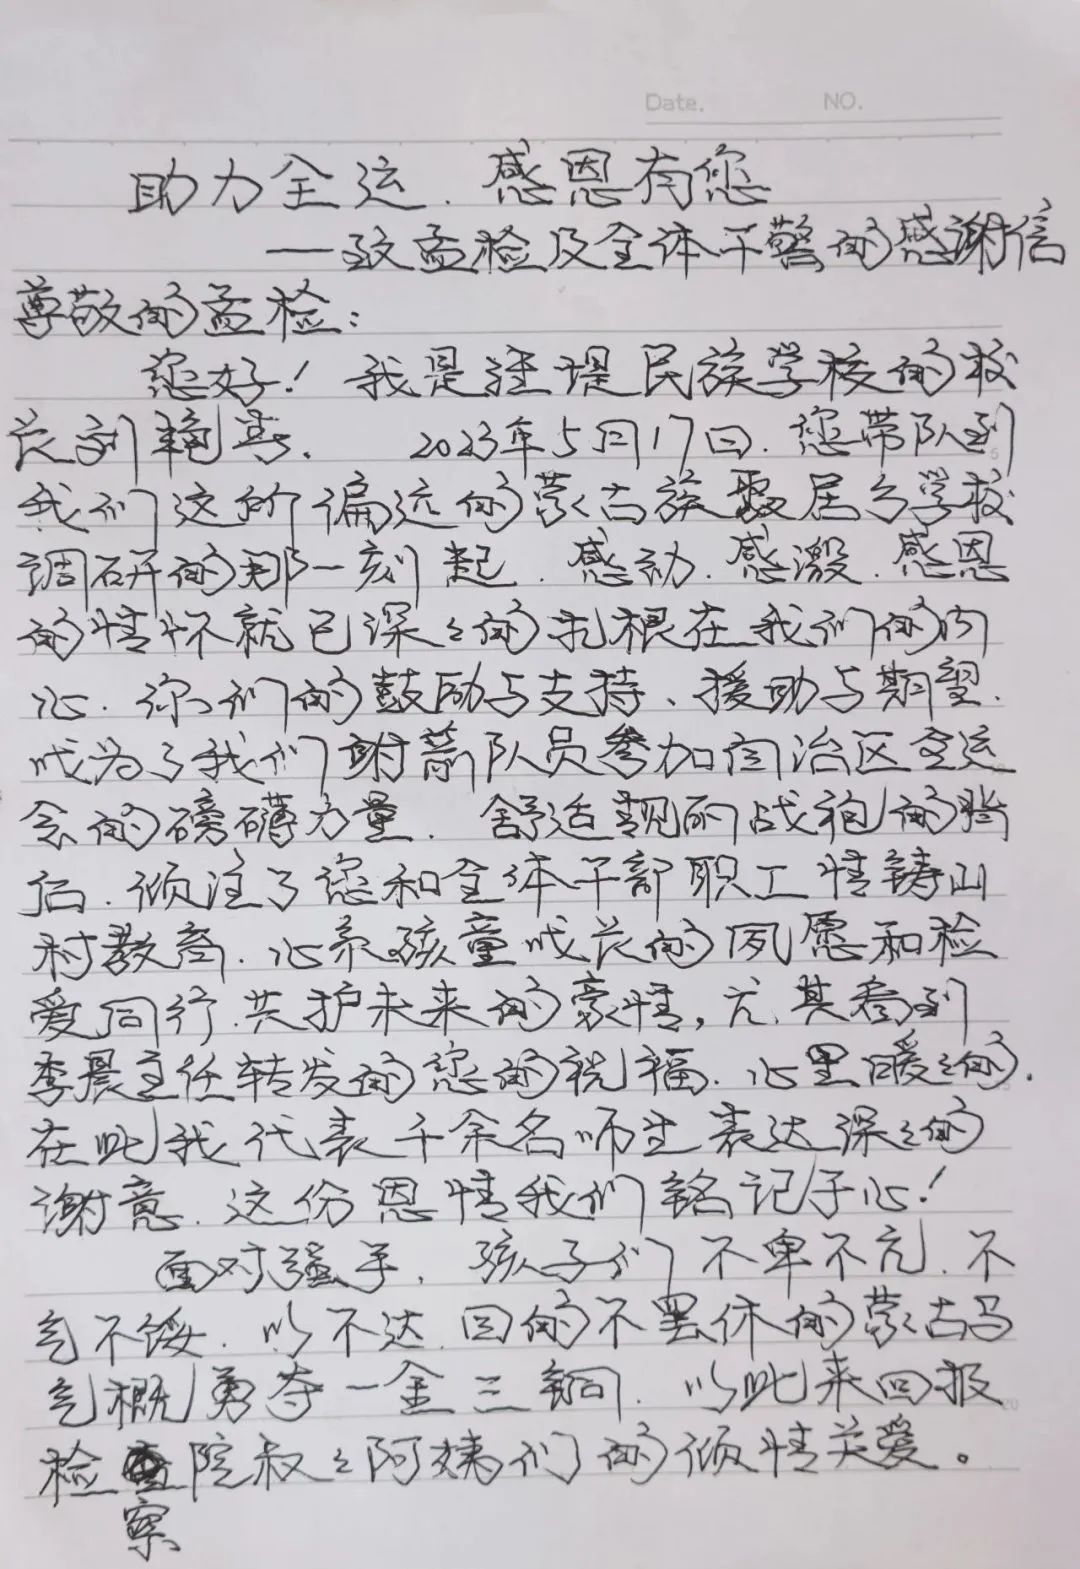 Date. NO.
助力全运.感恩有您
——致孟检及全体干警的感谢信
尊敬的孟检:
您好!我是洼堤民族学校的校
长刘艳春. 2023年5月17日.您带队到
我们这所偏远的蒙古族聚居乡学校
调研的那一刻起.感动.感激.感恩
的情怀就已深々的扎根在我们的内
心.你们的鼓励与支持、援助与期望.
成为了我们射箭队员参加自治区全运
会的磅礴力量.舒适靓丽战袍的背
后.倾注了您和全体干部职工情铸山
村教育.心系孩童成长的夙愿和检
爱同行.共护未来的豪情,尤其看到
李晨主任转发的您的祝福.心里暖々的.
在此我代表千余名师生表达深々的
谢意.这份恩情我们铭记于心!
面对强手.孩子们不卑不亢.不
气不馁.以不达目的不罢休的蒙古马
气概勇夺一金三铜.以此来回报
检察院叔々阿姨们的倾情关爱。